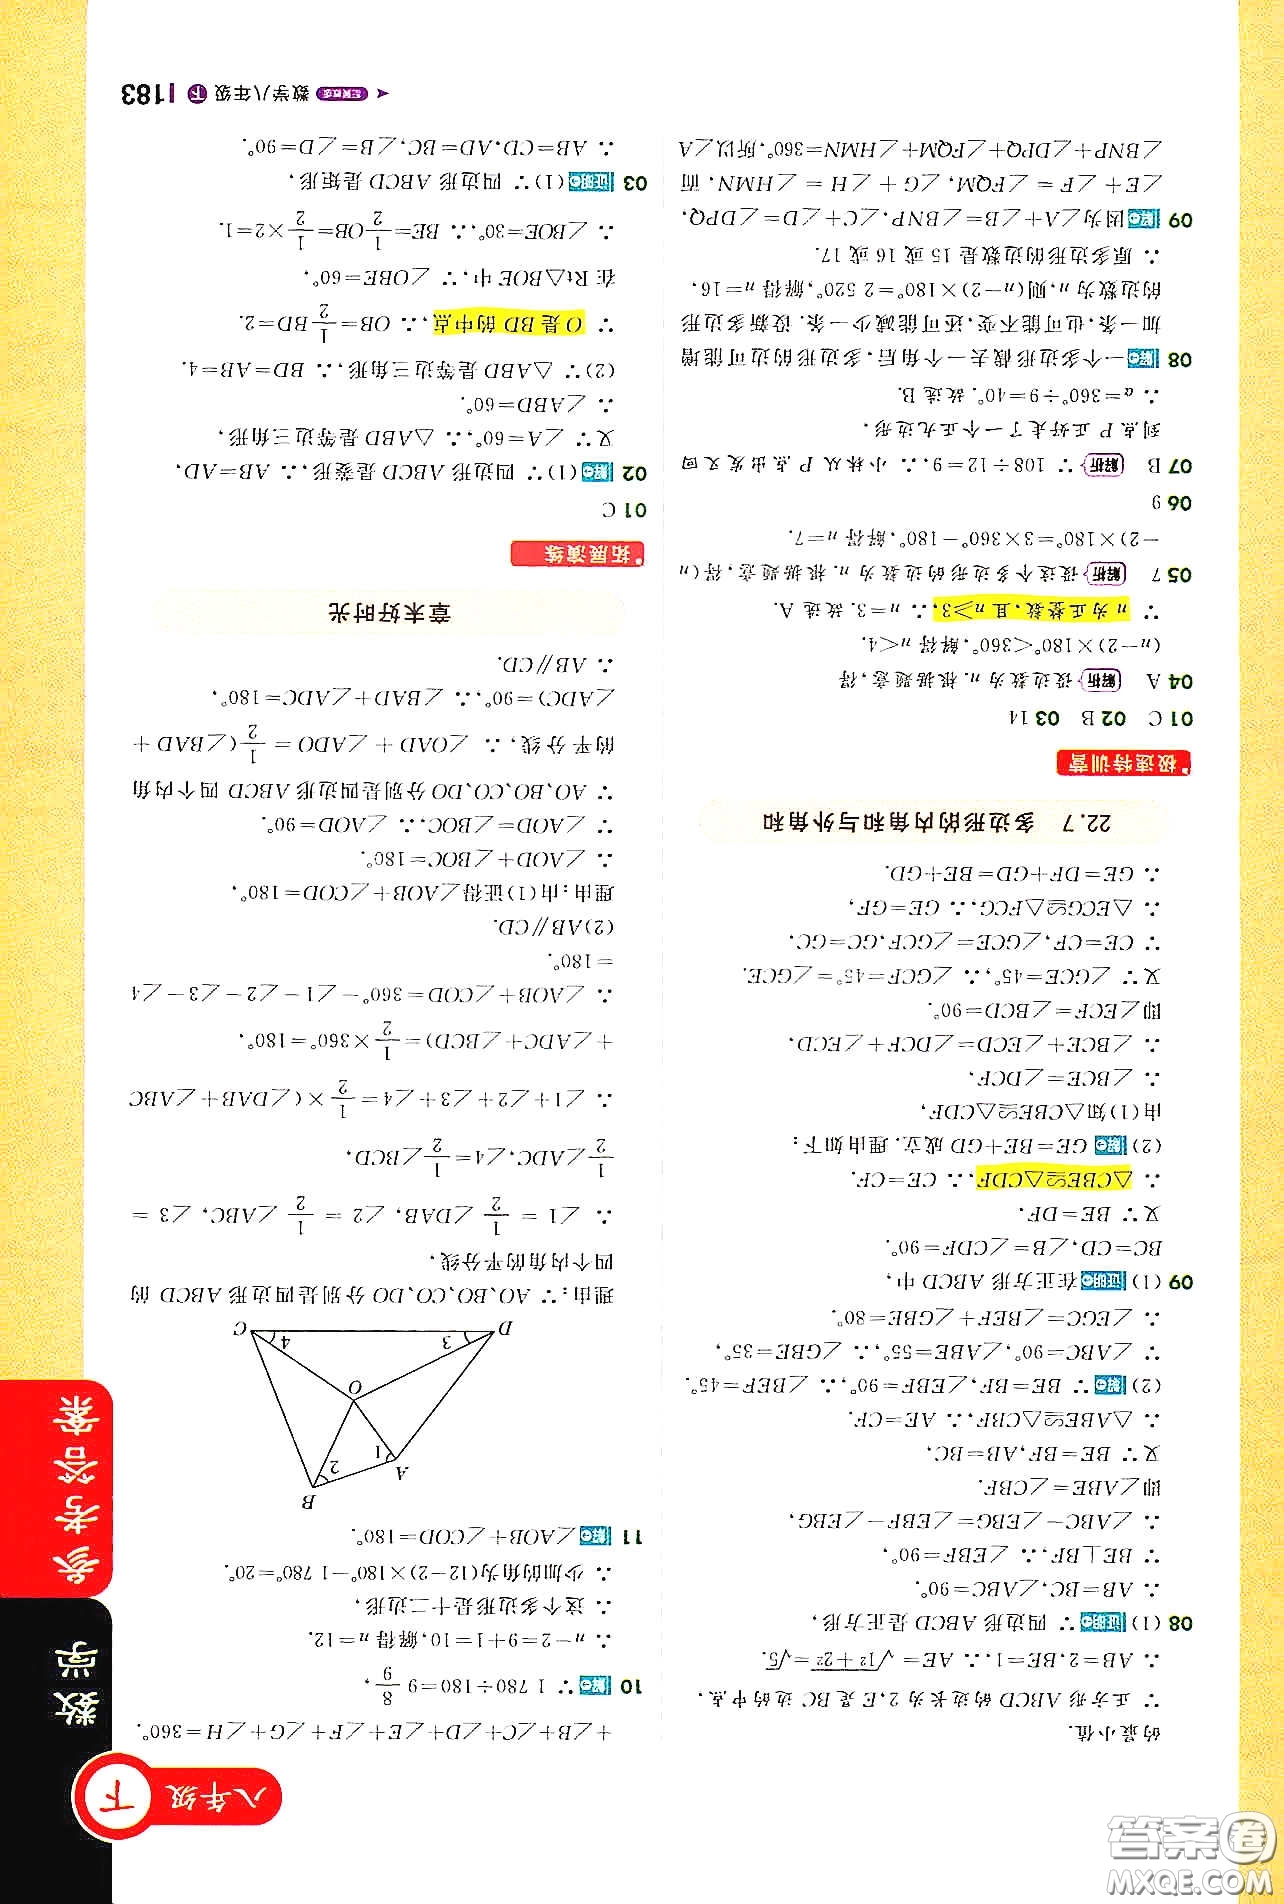 八年级 下
数学
参考答案
的最小值.
∵ 正方形 ABCD 的边长为 2,E 是 BC 边的中点,
∴ AB=2,BE=1.∴ AE=√1²+2²=√5.
08 (1) 证明 ∵ 四边形 ABCD 是正方形,
∴ AB=BC,∠ABC=90°.
∵ BE⊥BF,∴ ∠EBF=90°,
∴ ∠ABC-∠EBG=∠EBF-∠EBG,
即∠ABE=∠CBF.
又∵ BE=BF,AB=BC,
∴ △ABE≌△CBF.∴ AE=CF.
(2) 解 ∵ BE=BF,∠EBF=90°,∴ ∠BEF=45°.
∵ ∠ABC=90°,∠ABE=55°,∴ ∠GBE=35°,
∴ ∠EGC=∠BEF+∠GBE=80°.
09 (1) 证明 在正方形 ABCD 中,
BC=CD,∠B=∠CDF=90°.
又∵ BE=DF.
∴ △CBE≌△CDF.∴ CE=CF.
(2) 解 GE=BE+GD 成立.理由如下:
由(1)知△CBE≌△CDF,
∴ ∠BCE=∠DCF,
∴ ∠BCE+∠ECD=∠DCF+∠ECD,
即∠ECF=∠BCD=90°.
又∵ ∠GCE=45°,∴ ∠GCF=45°=∠GCE.
∵ CE=CF,∠GCE=∠GCF,GC=GC.
∴ △ECG≌△FCG.∴ GE=GF,
∴ GE=DF+GD=BE+GD.
22.7 多边形的内角和与外角和
极速特训营
01 C 02 B 03 14
04 A 解析 设边数为 n.根据题意,得
(n-2)×180°<360°,解得 n<4.
∵ n 为正整数,且 n≥3,∴ n=3.故选 A.
05 7 解析 设这个多边形的边数为 n.根据题意,得(n
-2)×180°=3×360°-180°,解得 n=7.
06 9
07 B 解析 ∵ 108÷12=9,∴ 小林从 P 点出发又回
到点 P 正好走了一个正九边形.
∴ α=360°÷9=40°.故选 B.
08 解 一个多边形截去一个角后,多边形的边可能增
加一条,也可能不变,还可能减少一条.设新多边形
的边数为 n,则(n-2)×180°=2 520°,解得 n=16,
∴ 原多边形的边数是 15 或 16 或 17.
09 解 因为∠A+∠B=∠BNP,∠C+∠D=∠DPQ,
∠E+∠F=∠FQM,∠G+∠H=∠HMN,而
∠BNP+∠DPQ+∠FQM+∠HMN=360°,所以∠A
+∠B+∠C+∠D+∠E+∠F+∠G+∠H=360°.
10 解 ∵ 1 780÷180=9 8/9,
∴ n-2=9+1=10,解得 n=12.
∴ 这个多边形是十二边形,
∴ 少加的角为(12-2)×180°-1 780°=20°.
11 解 ∠AOB+∠COD=180°.
B
A
2
1
O
3
4
D
C
理由:∵ AO、BO、CO、DO 分别是四边形 ABCD 的
四个内角的平分线,
∴ ∠1=1/2∠DAB,∠2=1/2∠ABC,∠3=
1/2∠ADC,∠4=1/2∠BCD,
∴ ∠1+∠2+∠3+∠4=1/2×(∠DAB+∠ABC
+∠ADC+∠BCD)=1/2×360°=180°,
∴ ∠AOB+∠COD=360°-∠1-∠2-∠3-∠4
=180°.
(2)AB∥CD.
理由:由(1)证得∠AOB+∠COD=180°,
∴ ∠AOD+∠BOC=180°.
∵ ∠AOD=∠BOC,∴ ∠AOD=90°.
∵ AO、BO、CO、DO 分别是四边形 ABCD 四个内角
的平分线,∴ ∠OAD+∠ADO=1/2(∠BAD+
∠ADC)=90°,∴ ∠BAD+∠ADC=180°,
∴ AB∥CD.
章末好时光
拓展演练
01 C
02 解 (1)∵ 四边形 ABCD 是菱形,∴ AB=AD,
又∵ ∠A=60°,∴ △ABD 是等边三角形,
∴ ∠ABD=60°.
(2)∵ △ABD 是等边三角形,∴ BD=AB=4.
∵ O 是 BD 的中点,∴ OB=1/2BD=2.
在 Rt△BOE 中,∴ ∠OBE=60°,
∴ ∠BOE=30°,∴ BE=1/2OB=1/2×2=1.
03 证明 (1)∵ 四边形 ABCD 是矩形,
∴ AB=CD,AD=BC,∠B=∠D=90°.
数学八年级 下 183
答案圈
MXQE.COM